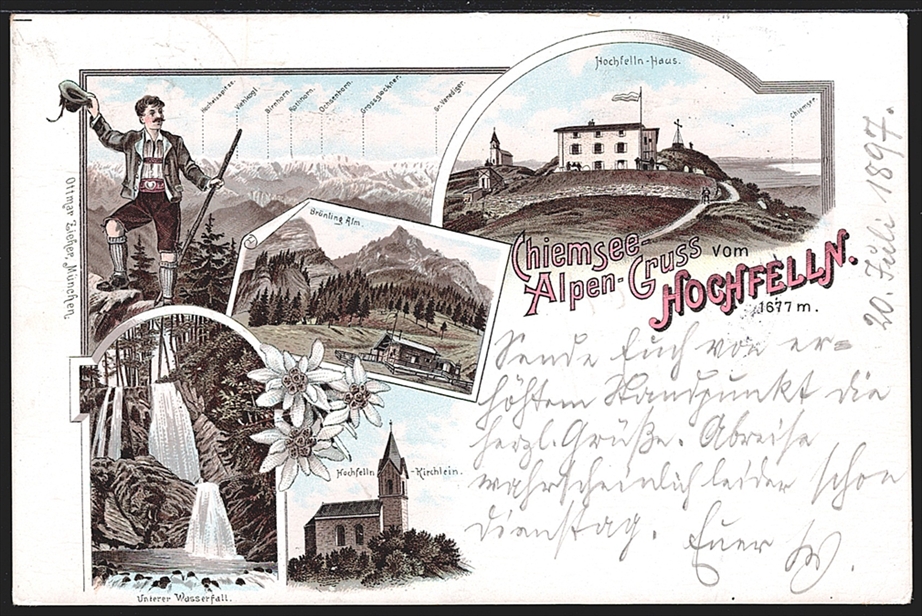 Hochfelln-Haus.
Watzmann
Chiemsee.
Vierkogl
Birnhorn.
Rothhorn.
Ochsenhorn.
Grossglockner.
Gr. Venediger.
Ottmar Zieher, München.
Bründling Alm.
Chiemsee-
Alpen-Gruss vom
HOCHFELLN.
1677 m.
20. Juli 1897.
Sende Euch von er=
höhtem Standpunkt die
herzl. Grüße. Abreise
wahrscheinlich leider schon
Dienstag. Euer W.
Hochfelln-Kirchlein.
Unterer Wasserfall.